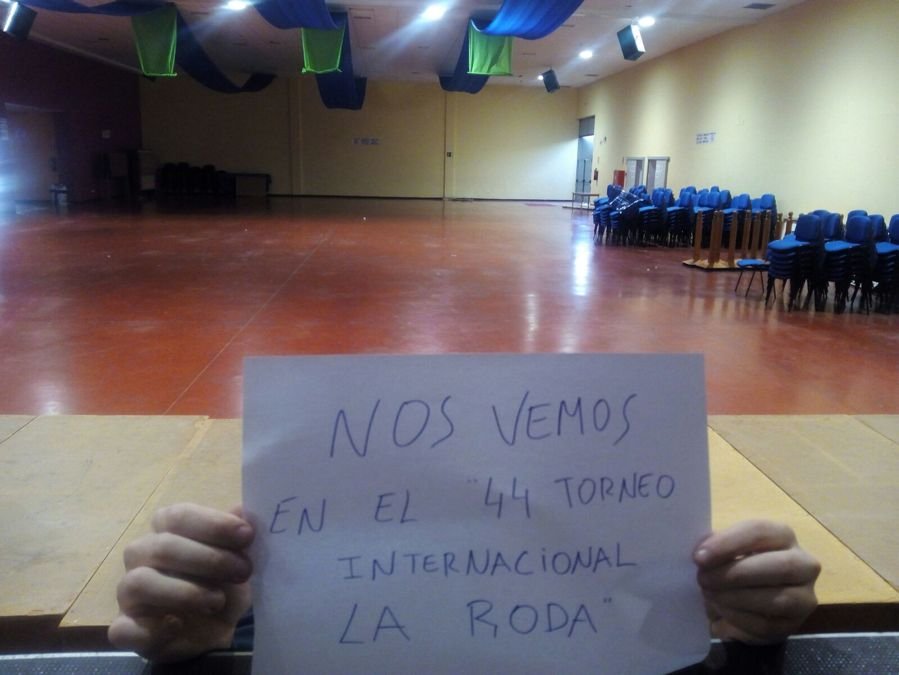 NOS VEMOS
EN EL "44 TORNEO
INTERNACIONAL
LA RODA"